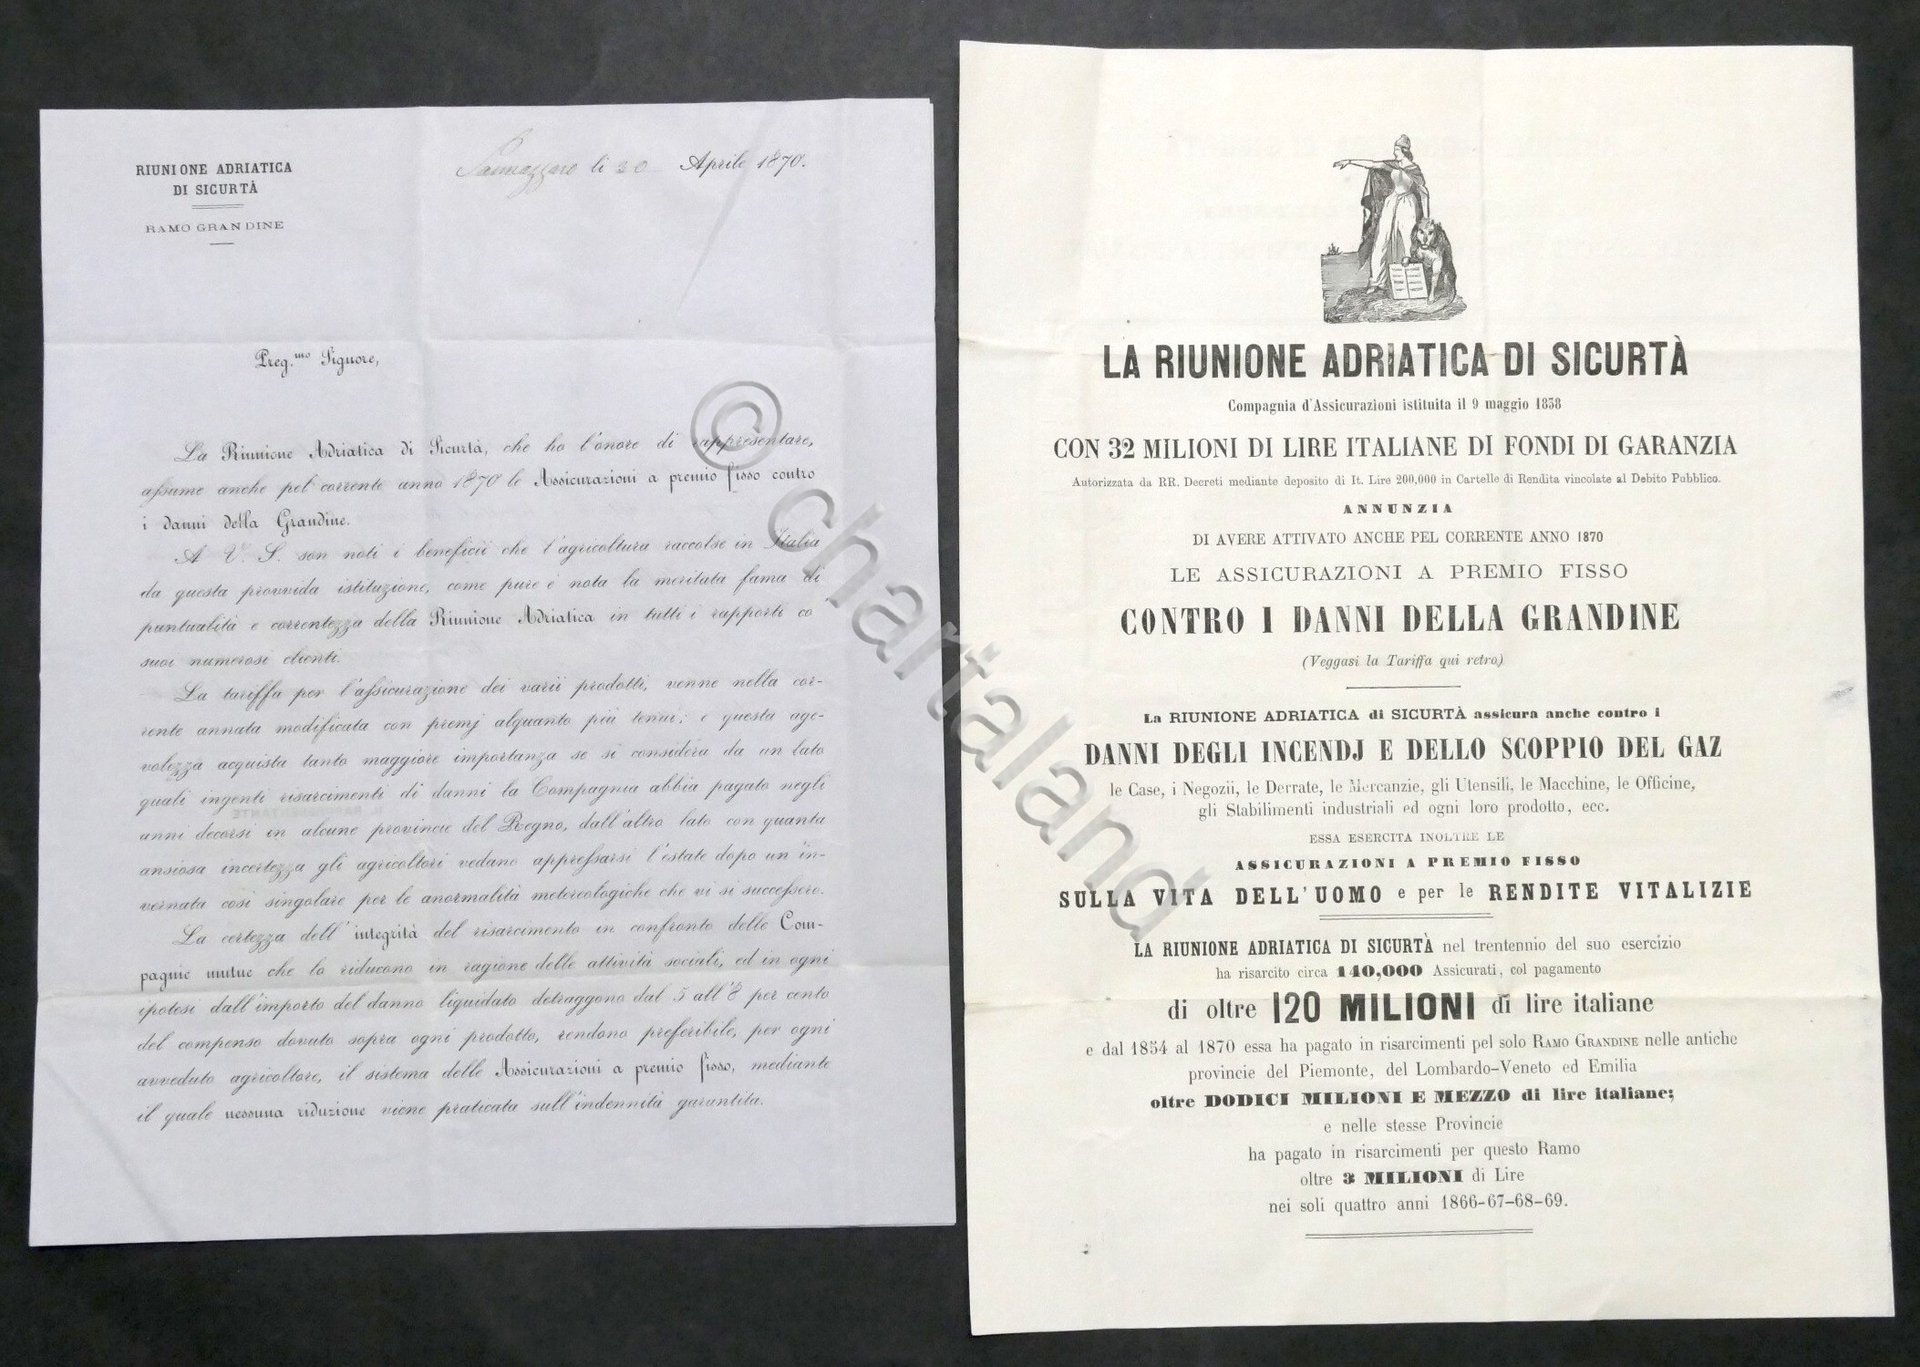 RIUNIONE ADRIATICA
DI SICURTÀ
RAMO GRANDINE
Sannazzaro li 20 Aprile 1870.
Preg.mo Signore,
La Riunione Adriatica di Sicurtà, che ho l'onore di rappresentare,
assume anche pel corrente anno 1870 le Assicurazioni a premio fisso contro
i danni della Grandine.
A V. S. son noti i beneficii che l'agricoltura raccolse in Italia
da questa provvida istituzione, come pure è nota la meritata fama di
puntualità e correntezza della Riunione Adriatica in tutti i rapporti co
suoi numerosi clienti.
La tariffa per l'assicurazione dei varii prodotti, venne nella cor-
rente annata modificata con premj alquanto più tenui; e questa age-
volezza acquista tanto maggiore importanza se si considera da un lato
quali ingenti risarcimenti di danni la Compagnia abbia pagato negli
anni decorsi in alcune provincie del Regno, dall'altro lato con quanta
ansiosa incertezza gli agricoltori vedano appressarsi l'estate dopo un'in-
vernata così singolare per le anormalità metereologiche che vi si successero.
La certezza dell'integrità del risarcimento in confronto delle Com-
pagnie mutue che lo riducono in ragione delle attività sociali, ed in ogni
ipotesi dall'importo del danno liquidato detraggono dal 5 all'8 per cento
del compenso dovuto sopra ogni prodotto, rendono preferibile, per ogni
avveduto agricoltore, il sistema delle Assicurazioni a premio fisso, mediante
il quale nessuna riduzione viene praticata sull'indennità garantita.
LA RIUNIONE ADRIATICA DI SICURTÀ
Compagnia d'Assicurazioni istituita il 9 maggio 1838
CON 32 MILIONI DI LIRE ITALIANE DI FONDI DI GARANZIA
Autorizzata da RR. Decreti mediante deposito di It. Lire 200,000 in Cartelle di Rendita vincolate al Debito Pubblico.
ANNUNZIA
DI AVERE ATTIVATO ANCHE PEL CORRENTE ANNO 1870
LE ASSICURAZIONI A PREMIO FISSO
CONTRO I DANNI DELLA GRANDINE
(Veggasi la Tariffa qui retro)
La RIUNIONE ADRIATICA di SICURTÀ assicura anche contro i
DANNI DEGLI INCENDJ E DELLO SCOPPIO DEL GAZ
le Case, i Negozii, le Derrate, le Mercanzie, gli Utensili, le Macchine, le Officine,
gli Stabilimenti industriali ed ogni loro prodotto, ecc.
ESSA ESERCITA INOLTRE LE
ASSICURAZIONI A PREMIO FISSO
SULLA VITA DELL'UOMO e per le RENDITE VITALIZIE
LA RIUNIONE ADRIATICA DI SICURTÀ nel trentennio del suo esercizio
ha risarcito circa 140,000 Assicurati, col pagamento
di oltre 120 MILIONI di lire italiane
e dal 1854 al 1870 essa ha pagato in risarcimenti pel solo RAMO GRANDINE nelle antiche
provincie del Piemonte, del Lombardo-Veneto ed Emilia
oltre DODICI MILIONI E MEZZO di lire italiane;
e nelle stesse Provincie
ha pagato in risarcimenti per questo Ramo
oltre 3 MILIONI di Lire
nei soli quattro anni 1866-67-68-69.
© chartaland